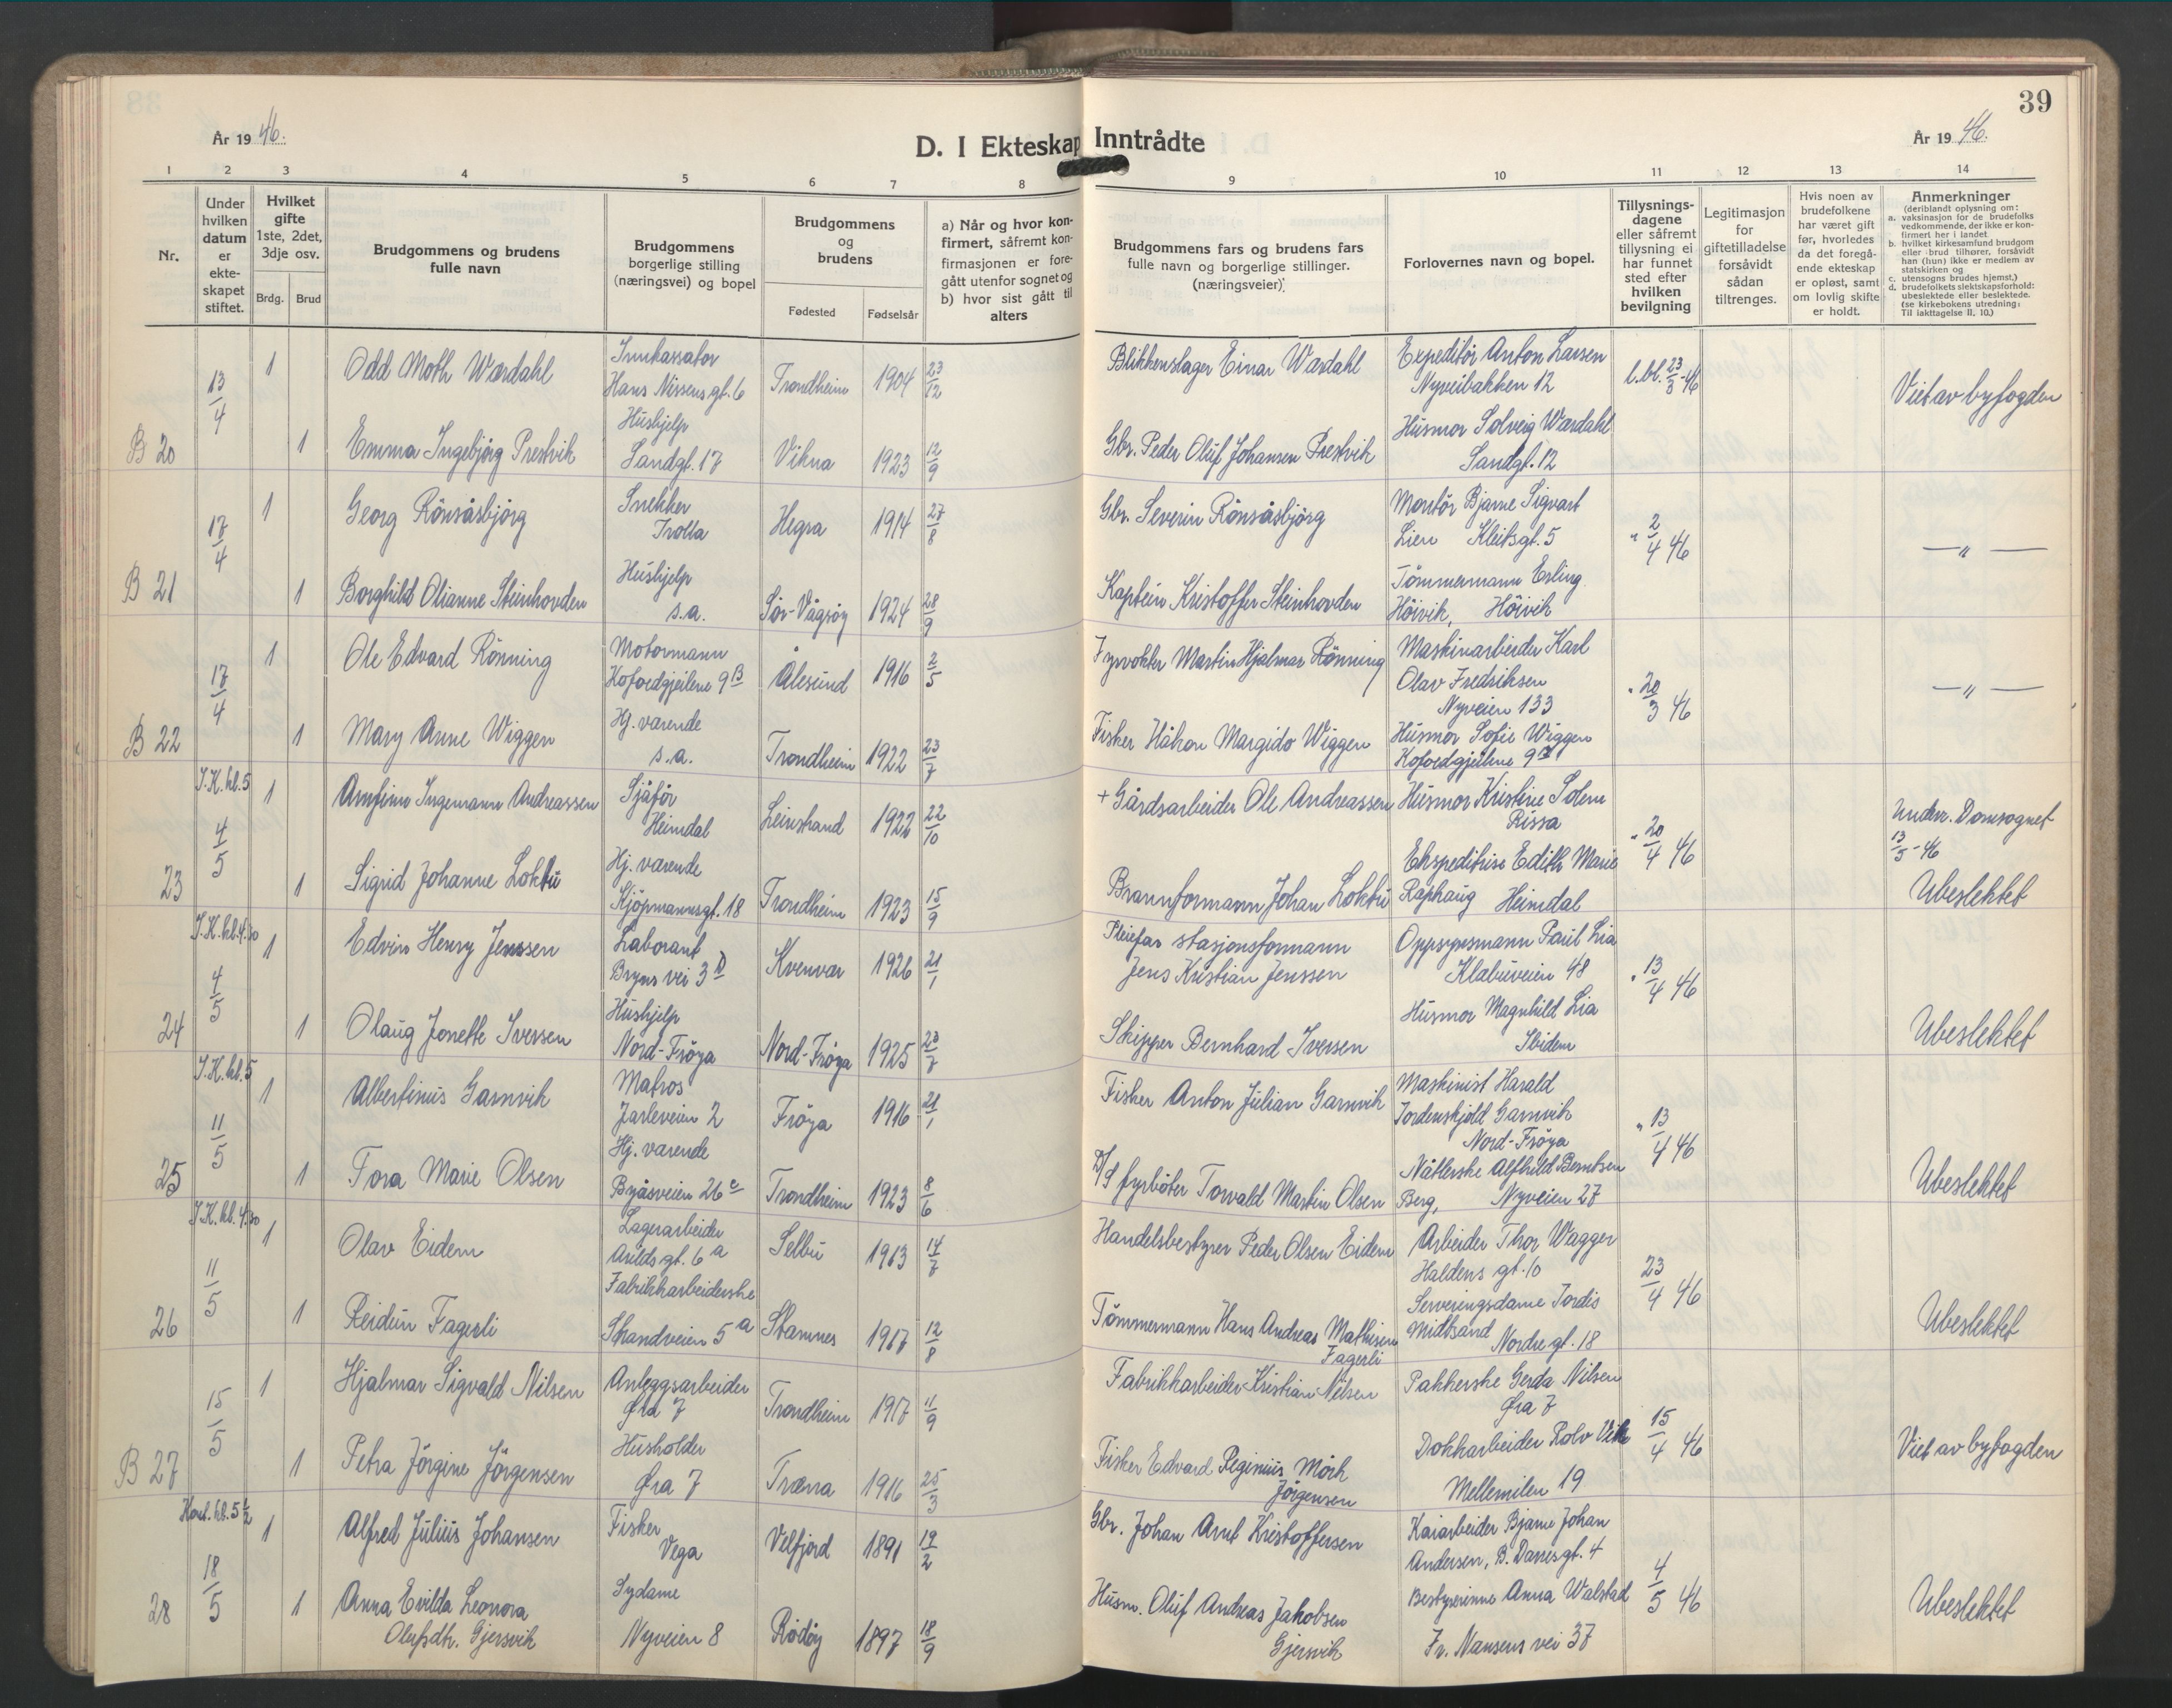 39
År 1946.
D. I Ekteskap Inntrådte
År 1946.
1 2 3 4 5 6 7 8 9 10 11 12 13 14
Nr.
Under hvilken datum er ekteskapet stiftet.
Hvilket gifte 1ste, 2det, 3dje osv.
Brdg. Brud
Brudgommens og brudens fulle navn
Brudgommens borgerlige stilling (næringsvei) og bopel
Brudgommens og brudens
Fødested Fødselsår
a) Når og hvor konfirmert, såfremt konfirmasjonen er foregått utenfor sognet og b) hvor sist gått til alters
Brudgommens fars og brudens fars fulle navn og borgerlige stillinger. (næringsveier).
Forlovernes navn og bopel.
Tillysningsdagene eller såfremt tillysning ei har funnet sted efter hvilken bevilgning
Legitimasjon for giftetilladelse forsåvidt sådan tiltrenges.
Hvis noen av brudefolkene har været gift før, hvorledes da det foregående ekteskap er opløst, samt om lovlig skifte er holdt.
Anmerkninger
(deriblandt oplysning om:
a. vaksinasjon for de brudefolks vedkommende, der ikke er konfirmert her i landet
b. hvilket kirkesamfund brudgom eller brud tilhører, forsåvidt han (hun) ikke er medlem av statskirken og
c. utensogns brudes hjemst.)
d. brudefolkets slektskapsforhold: ubeslektede eller beslektede.
(se kirkebokens utredning: Til iakttagelse II, 10.)
B 20 13/4 1 Odd Moth Wærdahl Innkassator Hans Nissens gt. 6 Trondheim 1904 23/12 Blikkenslager Einar Wærdahl Expeditør Anton Larsen Nyveibakken 12 l.bl. 23/3-46 Viet av byfogden
1 Emma Ingebjørg Prestvik Hushjelp Sandgt. 17 Vikna 1923 12/9 Gbr. Peder Oluf Johansen Prestvik Husmor Solveig Wærdahl Sandgt. 12
B 21 17/4 1 Georg Rönsåsbjörg Snekker Trolla Hegra 1914 27/8 Gbr. Severin Rönsåsbjörg Montör Bjarne Sigvart Lien Kleitsgt. 5 " 2/4 46 — " —
1 Borghild Olianne Steinhovden Hushjelp s.a. Sör-Vågsøy 1924 28/9 Kaptein Kristoffer Steinhovden Tömmermann Erling Höivik, Höivik
B 22 17/4 1 Ole Edvard Rönning Motormann Kofoedgjeilene 9 B Ålesund 1916 2/5 Fyrvokter Martin Hjalmar Rönning Maskinarbeider Karl Olav Fredriksen Nyveien 133 " 20/3 46 — " —
1 Mary Anne Wiggen Hj. værende s.a. Trondheim 1922 23/7 Fisker Håkon Margido Wiggen Husmor Sofie Wiggen Kofoedgjeilene 9 B
23 I.K. kl. 5 4/5 1 Arnfinn Ingemann Andreassen Sjåför Heimdal Leinstrand 1922 22/10 + Gårdsarbeider Ole Andreassen Husmor Kristine Solem Rissa " 20/4 46 Undr. Domsognet 13/5-46
1 Sigrid Johanne Loktu Hj. værende Kjöpmannsgt. 18 Trondheim 1923 15/9 Brannformann Johan Loktu Ekspeditrise Edith Marie Raphaug Heimdal Ubeslektet
24 I.K. kl. 4.30 4/5 1 Edvin Henry Jenssen Laborant Bryns vei 3 D Kvenvær 1926 21/1 Pleiefar stasjonsformann Jens Kristian Jenssen Oppsynsmann Paul Lia Klæbuveien 48 " 13/4 46
1 Olaug Jonette Iversen Hushjelp Nord-Fröya Nord-Fröya 1925 20/7 Skipper Bernhard Iversen Husmor Magnhild Lia Ibidem Ubeslektet
25 I.K. kl. 5 11/5 1 Albertinius Garnvik Matros Jarleveien 2 Fröya 1916 21/1 Fisker Anton Julian Garnvik Maskinist Harald Tordenskjold Garnvik Nord-Fröya " 13/4 46
1 Tora Marie Olsen Hj. værende Byåsveien 26 c Trondheim 1923 8/6 D/S fyrböter Torvald Martin Olsen Nåtlerske Alfhild Berntsen Berg, Nyveien 27 Ubeslektet
26 I.K. kl. 4.30 11/5 1 Olav Eidem Lagerarbeider Arilds gt. 6 a Selbu 1913 14/7 Handelsbestyrer Peder Olsen Eidem Arbeider Thor Wagger Haldens gt. 10 23/4 46
1 Reidun Fagerli Fabrikkarbeiderske Strandveien 5 a Stamnes 1917 12/8 Tömmermann Hans Andreas Mathisen Fagerli Serveringsdame Tordis Midtsand Nordre gt. 18 Ubeslektet
B 27 15/5 1 Hjalmar Sigvald Nilsen Anleggsarbeider Øra 7 Trondheim 1917 11/9 Fabrikkarbeider Kristian Nilsen Pakkerske Gerda Nilsen Øra 7 15/4 46 Viet av byfogden
1 Petra Jörgine Jörgensen Husholder Øra 7 Træna 1916 25/3 Fisker Edvard Reginius Mörk Jörgensen Dokkarbeider Rolv Vik Mellemilen 19
28 Kat. kl. 5 1/2 18/5 1 Alfred Julius Johansen Fisker Vega Velfjord 1891 19/2 Gbr. Johan Arnt Kristoffersen Kaiarbeider Bjarne Johan Andersen, B. Danesgt. 4 4/5 46
1 Anna Evilda Leonora Olufsdtr. Gjersvik Sydame Nyveien 8 Rödöy 1897 18/9 Husm. Oluf Andreas Jakobsen Gjersvik Bestyrerinne Anna Walstad Fr. Nansens vei 37 Ubeslektet